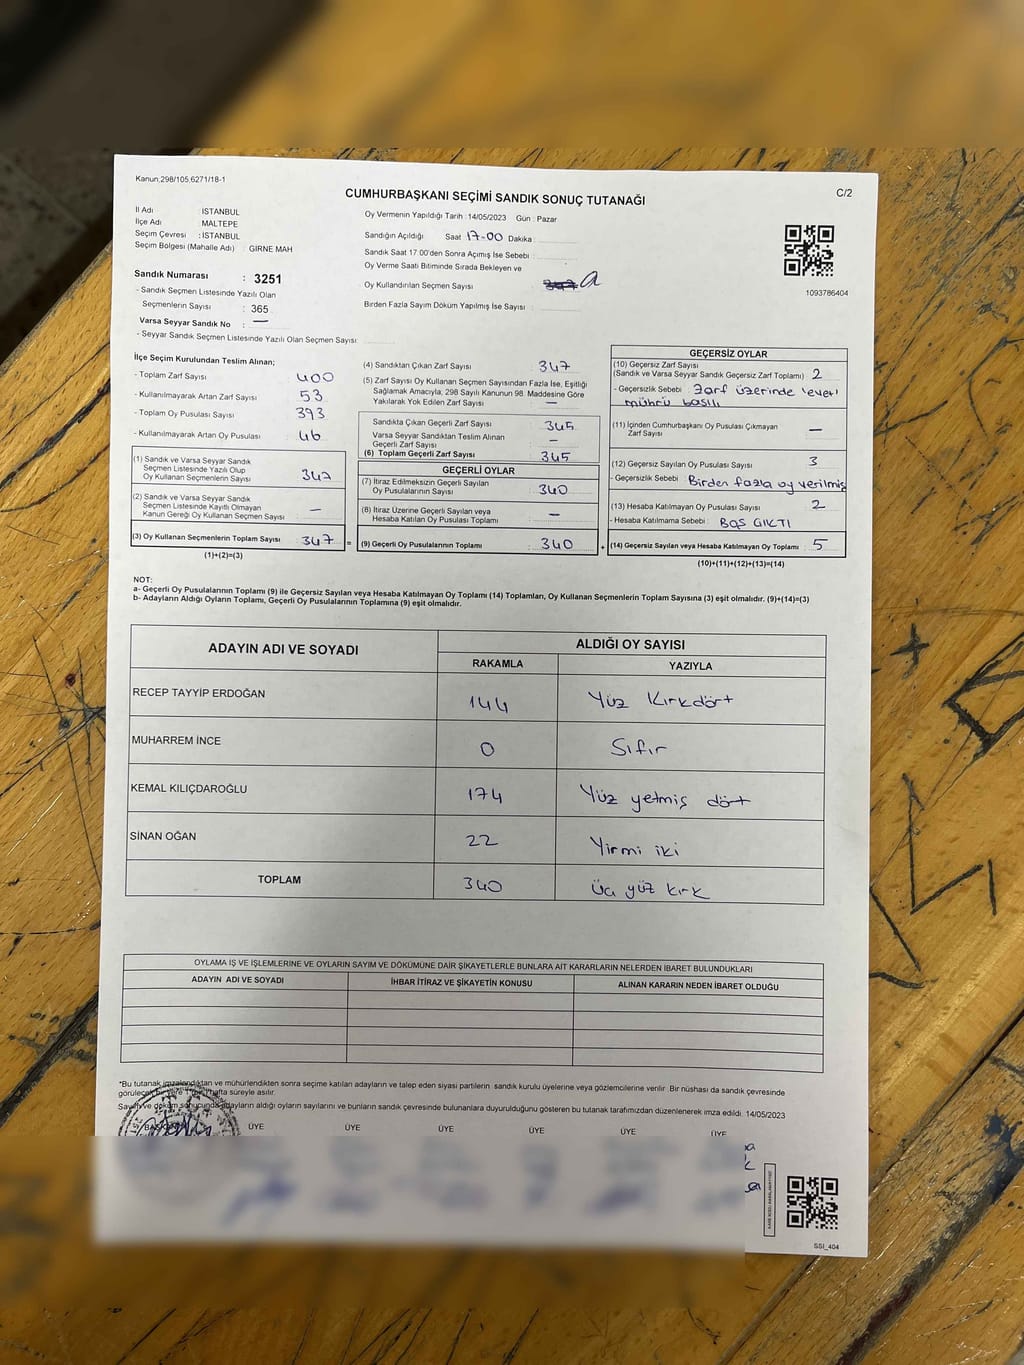 Kanun:298/105,6271/18-1
CUMHURBAŞKANI SEÇİMİ SANDIK SONUÇ TUTANAĞI
C/2
İl Adı : İSTANBUL
İlçe Adı : MALTEPE
Seçim Çevresi : İSTANBUL
Seçim Bölgesi (Mahalle Adı) : GIRNE MAH
Sandık Numarası : 3251
- Sandık Seçmen Listesinde Yazılı Olan
Seçmenlerin Sayısı : 365
Varsa Seyyar Sandık No : —
- Seyyar Sandık Seçmen Listesinde Yazılı Olan Seçmen Sayısı:
Oy Vermenin Yapıldığı Tarih : 14/05/2023 Gün : Pazar
Sandığın Açıldığı Saat 17-00 Dakika :
Sandık Saat 17.00'den Sonra Açımış İse Sebebi :
Oy Verme Saati Bitiminde Sırada Bekleyen ve
Oy Kullandırılan Seçmen Sayısı
Birden Fazla Sayım Döküm Yapılmış İse Sayısı :
1093786404
İlçe Seçim Kurulundan Teslim Alınan;
- Toplam Zarf Sayısı 400
- Kullanılmayarak Artan Zarf Sayısı 53
- Toplam Oy Pusulası Sayısı 393
- Kullanılmayarak Artan Oy Pusulası 46
(1) Sandık ve Varsa Seyyar Sandık
Seçmen Listesinde Yazılı Olup
Oy Kullanan Seçmenlerin Sayısı 347
(2) Sandık ve Varsa Seyyar Sandık
Seçmen Listesinde Kayıtlı Olmayan
Kanun Gereği Oy Kullanan Seçmen Sayısı —
(3) Oy Kullanan Seçmenlerin Toplam Sayısı 347 =
(1)+(2)=(3)
(4) Sandıktan Çıkan Zarf Sayısı 347
(5) Zarf Sayısı Oy Kullanan Seçmen Sayısından Fazla İse, Eşitliği
Sağlamak Amacıyla; 298 Sayılı Kanunun 98. Maddesine Göre
Yakılarak Yok Edilen Zarf Sayısı —
Sandıkta Çıkan Geçerli Zarf Sayısı 345
Varsa Seyyar Sandıktan Teslim Alınan
Geçerli Zarf Sayısı —
(6) Toplam Geçerli Zarf Sayısı 345
GEÇERLİ OYLAR
(7) İtiraz Edilmeksizin Geçerli Sayılan
Oy Pusulalarının Sayısı 340
(8) İtiraz Üzerine Geçerli Sayılan veya
Hesaba Katılan Oy Pusulası Toplamı —
(9) Geçerli Oy Pusulalarının Toplamı 340 +
GEÇERSİZ OYLAR
(10) Geçersiz Zarf Sayısı
(Sandık ve Varsa Seyyar Sandık Geçersiz Zarf Toplamı) 2
- Geçersizlik Sebebi : Zarf üzerinde 'evet'
mührü basılı
(11) İçinden Cumhurbaşkanı Oy Pusulası Çıkmayan
Zarf Sayısı —
(12) Geçersiz Sayılan Oy Pusulası Sayısı 3
- Geçersizlik Sebebi : Birden fazla oy verilmiş
(13) Hesaba Katılmayan Oy Sayısı 2
- Hesaba Katılmama Sebebi : BOŞ ÇIKTI
(14) Geçersiz Sayılan veya Hesaba Katılmayan Oy Toplamı 5
(10)+(11)+(12)+(13)=(14)
NOT:
a- Geçerli Oy Pusulalarının Toplamı (9) ile Geçersiz Sayılan veya Hesaba Katılmayan Oy Toplamı (14) Toplamları, Oy Kullanan Seçmenlerin Toplam Sayısına (3) eşit olmalıdır. (9)+(14)=(3)
b- Adayların Aldığı Oyların Toplamı, Geçerli Oy Pusulalarının Toplamına (9) eşit olmalıdır.
ADAYIN ADI VE SOYADI
ALDIĞI OY SAYISI
RAKAMLA YAZIYLA
RECEP TAYYİP ERDOĞAN 144 Yüz Kırkdört
MUHARREM İNCE 0 Sıfır
KEMAL KILIÇDAROĞLU 174 Yüz yetmiş dört
SİNAN OĞAN 22 Yirmi iki
TOPLAM 340 Üç yüz kırk
OYLAMA İŞ VE İŞLEMLERİNE VE OYLARIN SAYIM VE DÖKÜMÜNE DAİR ŞİKAYETLERLE BUNLARA AİT KARARLARIN NELERDEN İBARET BULUNDUKLARI
ADAYIN ADI VE SOYADI İHBAR İTİRAZ VE ŞİKAYETİN KONUSU ALINAN KARARIN NEDEN İBARET OLDUĞU
*Bu tutanak imzalandıktan ve mühürlendikten sonra seçime katılan adayların ve talep eden siyasi partilerin sandık kurulu üyelerine veya gözlemcilerine verilir. Bir nüshası da sandık çevresinde
görülecek bir yere 1 (bir) hafta süreyle asılır.
Sayım ve döküm sonucunda adayların aldığı oyların sayılarını ve bunların sandık çevresinde bulunanlara duyurulduğunu gösteren bu tutanak tarafımızdan düzenlenerek imza edildi. 14/05/2023
BAŞKAN ÜYE ÜYE ÜYE ÜYE ÜYE ÜYE
SSI_404